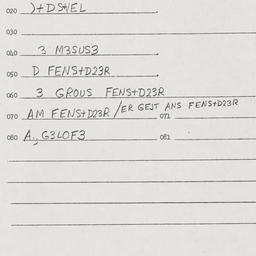 020 )+D S+/EL
030
040 3 M3SUS3
050 D FENS+D23R
060 3 GROUS FENS+D23R
070 AM FENS+D23R /ER GEJT ANS FENS+D23R 071
080 A., G3LOF3 081